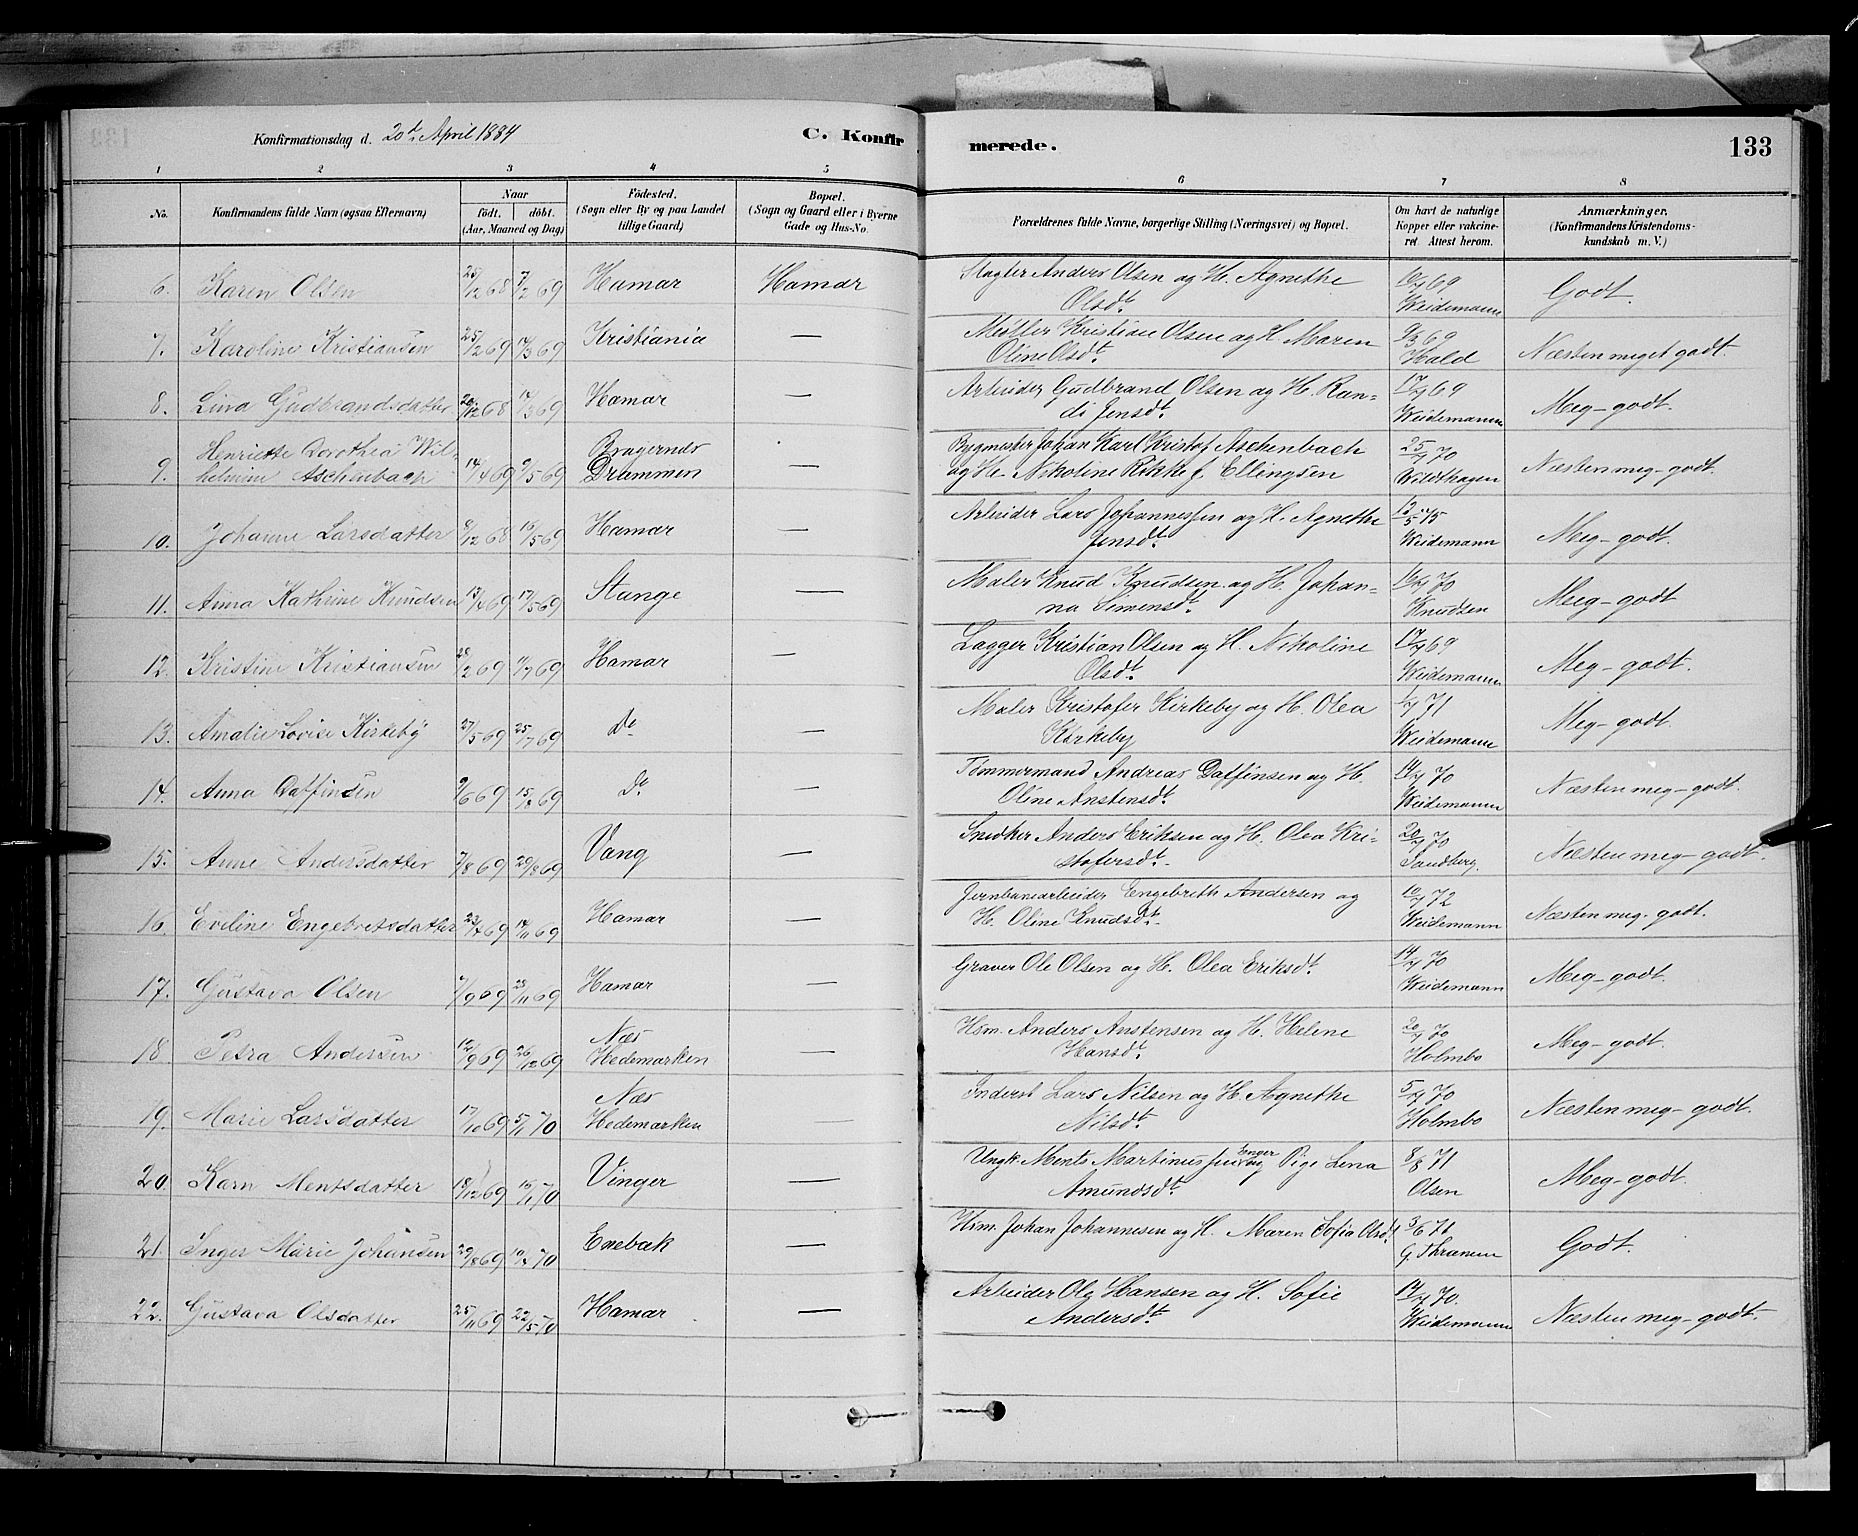 Konfirmationsdag d. 20de April 1884 C. Konfirmerede. 133
1 2 3 4 5 6 7 8
No. Konfirmandens fulde Navn (ogsaa Efternavn) Naar födt. döbt. (Aar, Maaned og Dag) Födested. (Sogn eller By og paa Landet tillige Gaard) Bopæl. (Sogn og Gaard eller i Byerne Gade og Hus-No. Forældrenes fulde Navne, borgerlige Stilling (Næringsvei) og Bopæl. Om havt de naturlige Kopper eller vakcineret Attest herom. Anmærkninger. (Konfirmandens Kristendomskundskab m. V.)
6. Karen Olsen 25/12 68 7/2 69 Hamar Hamar Slagter Anders Olsen og H. Agnethe Olsdt. 69 Weidemann Godt.
7. Karoline Kristiansen 25/2 69 /3 69 Kristiania — Møller Kristian Olsen og H. Maren Oline Olsdt. 9/3 69 Hald Næsten meget godt.
8. Lina Gudbrandsdatter /12 68 /3 69 Hamar — Arbeider Gudbrand Olsen og H. Randi Jensdt. 17/9 69 Weidemann Meg-godt.
9. Henriette Dorothea Wilhelmine Aschenbach 14/4 69 9/5 69 Bragernes Drammen — Bygmester Johan Karl Kristof Aschenbach og H. Nikoline Rikke f. Ellingsen 25/ 70 Wildthagen Næsten meg-godt.
10. Johanne Larsdatter 8/12 68 15/5 69 Hamar — Arbeider Lars Johannessen og H. Agnethe Jensdt. 12/5 75 Weidemann Meg-godt.
11. Anna Kathrine Knudsen 13/4 69 17/5 69 Stange — Maler Knud Knudsen og H. Johanna Simensdt. 16/9 70 Knudsen Meg-godt
12. Kristine Kristiansen 28/2 69 /7 69 Hamar — Lagger Kristian Olsen og H. Nikoline Olsdt. 17/9 69 Weidemann Meg-godt.
13. Amalie Lovise Kirkeby 27/5 69 25/7 69 Do — Maler Kristofer Kirkeby og H. Olea Kirkeby 71 Weidemann Meg-godt.
14. Anna Daffinsen 9/6 69 15/8 69 Do — Tømmermand Andreas Daffinsen og H. Oline Anstensdt. 14/ 70 Weidemann Næsten meg-godt.
15. Anne Andersdatter 7/8 69 29/8 69 Vang — Snedker Anders Eriksen og H. Olea Kristofersdt. 20/ 70 Sandberg. Næsten meg-godt.
16. Eveline Engebretsdatter 23/4 69 14/11 69 Hamar — Jernbanearbeider Engebreth Andersen og H. Oline Knudsdt. 10/ 72 Weidemann Næsten meg-godt.
17. Gustava Olsen 7/9 69 23/11 69 Hamar — Graver Ole Olsen og H. Olea Eriksdt. 14/ 70 Weidemann Meg-godt.
18. Petra Andersen 12/9 69 26/12 69 Næs Hedemarken — Hsm. Anders Anstensen og H. Helene Hansdt. 20/ 70 Holmbo Meg-godt.
19. Marie Larsdatter 17/10 69 5/1 70 Næs Hedemarken — Inderst Lars Nilsen og H. Agnethe Nilsdt. 5/ 70 Holmbo Næsten meg-godt.
20. Karn Mentsdatter 18/12 69 16/1 70 Vinger — Ungk. Ments Martinussen Enger og Pige Lena Amundsdt. 8/8 71 Olsen Meg-godt.
21. Inger Marie Johansen 29/8 69 10/4 70 Enebak — Hsm. Johan Johannesen og H. Maren Sofia Olsdt. 3/6 71 G. Thranum Godt.
22. Gustava Olsdatter 25/11 69 22/5 70 Hamar — Arbeider Ole Hansen og H. Sofie Andersdt. 14/ 70. Weidemann Næsten meg-godt.